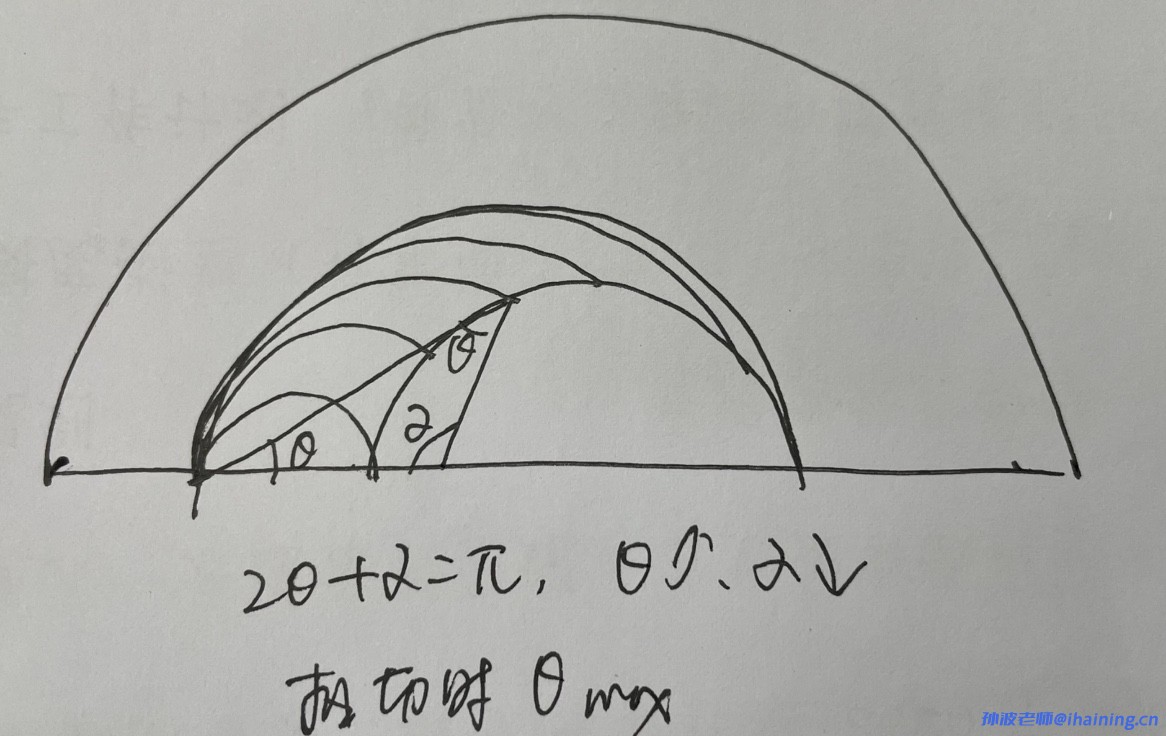 θ
α
θ
2θ+α=π, θ↑、α↓
相切时 θmax
孙波老师@ihaining.cn